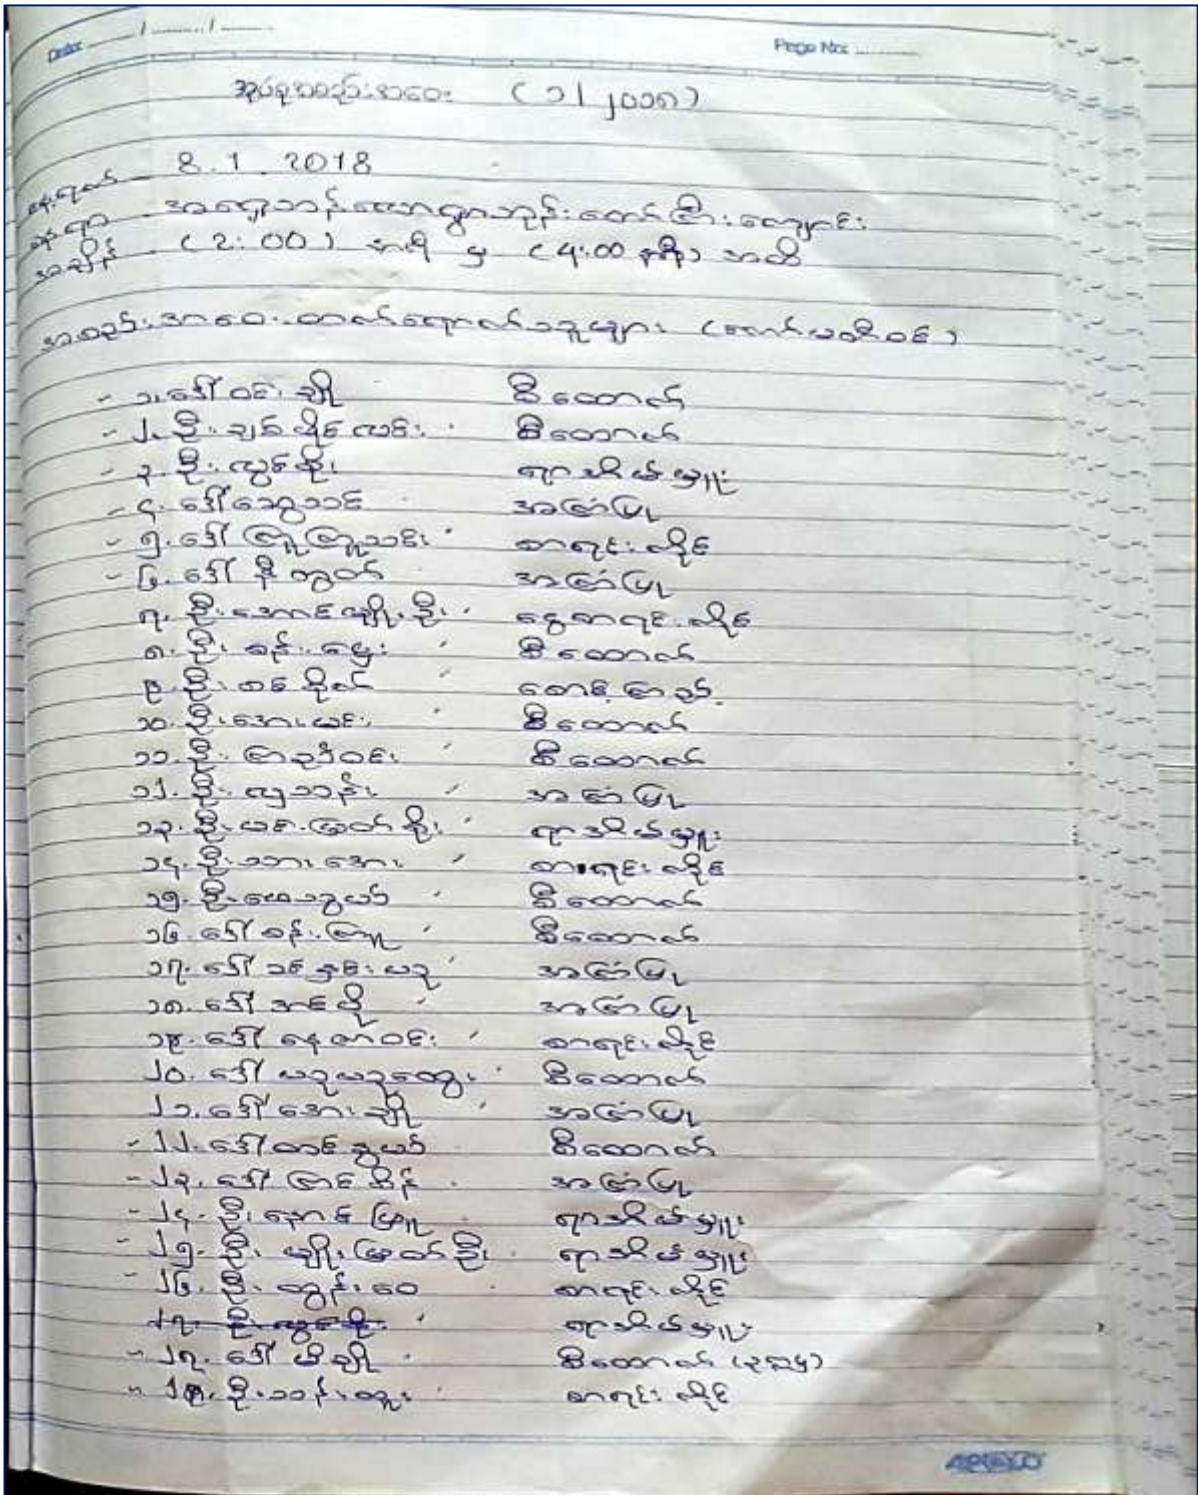 Date: ....../............/...........
Page No: ..............
အုပ်စုအစည်းအဝေး (၁/၂၀၁၈)
နေ့ရက် - 8.1.2018
နေရာ - ဘုန်းတော်ကြီးကျောင်း
အချိန် - (2:00) နာရီ မှ (4:00 နာရီ) အထိ
အစည်းအဝေးတက်ရောက်သူများ (ကော်မတီဝင်)
- ၁. ဒေါ်ဝင်းချို စီထောက်
- ၂. ဦးချစ်လှိုင်ဝင်း စီထောက်
- ၃. ဦးလွင်စိုး ရာအိမ်မှူး
- ၄. ဒေါ်ဆွေသင် အကြံပြု
- ၅. ဒေါ်ကြူကြူသင်း စာရင်းကိုင်
- ၆. ဒေါ်နီထွတ် အကြံပြု
၇. ဦးအောင်မျိုးဦး ငွေစာရင်းကိုင်
၈. ဦးစန်းမြှေး စီထောက်
၉. ဦး စောင့်ကြည့်
၁၀. ဦးအေးမင်း စီထောက်
၁၁. ဦးကြည်ဝင်း စီထောက်
၁၂. ဦးလှသန်း အကြံပြု
၁၃. ဦးမင်းမြတ်စိုး ရာအိမ်မှူး
၁၄. ဦးသားအေး စာရင်းကိုင်
၁၅. ဦးထေးသွယ် စီထောက်
၁၆. ဒေါ်စန်းကြူ စီထောက်
၁၇. ဒေါ်သင်နှင်းယု အကြံပြု
၁၈. ဒေါ်အင်ပို အကြံပြု
၁၉. ဒေါ်နေဇာဝင်း စာရင်းကိုင်
၂၀. ဒေါ်ယုယုထွေး စီထောက်
၂၁. ဒေါ်အေးချို အကြံပြု
- ၂၂. ဒေါ်တင်နွယ် စီထောက်
- ၂၃. ဒေါ်ကြင်စိန် အကြံပြု
- ၂၄. ဦးနောင်ဖြူ ရာအိမ်မှူး
- ၂၅. ဦးမျိုးမြတ်ဦး ရာအိမ်မှူး
- ၂၆. ဦးထွန်းဝေ စာရင်းကိုင်
၂၇. ဦးလွင်စိုး ရာအိမ်မှူး
- ၂၇. ဒေါ်မိချို စီထောက် (ဥက္ကဌ)
- ၂၈. ဦးသန်းထူး စာရင်းကိုင်
APOLLO